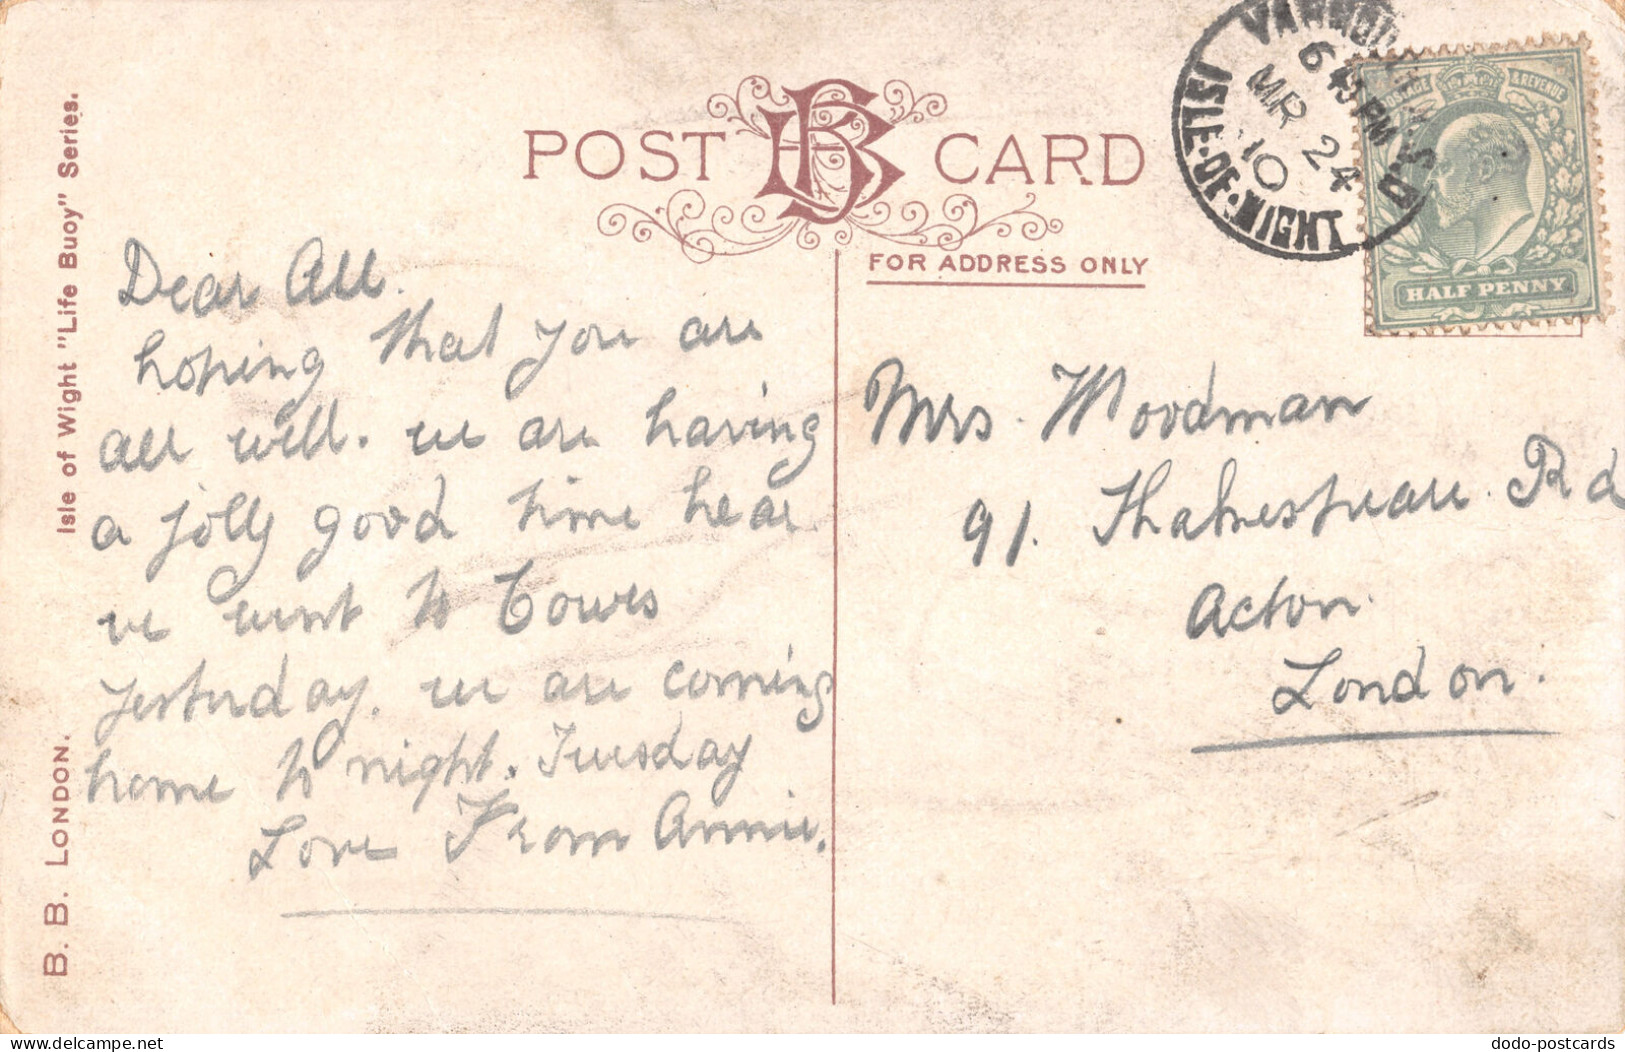 POST CARD
FOR ADDRESS ONLY
Isle of Wight "Life Buoy" Series.
B. B. LONDON.
YARMOUTH
6 45 PM
MR 24
10
ISLE·OF·WIGHT
POSTAGE & REVENUE
HALF PENNY
Dear All.
hoping that you are
all well. we are having
a jolly good time hear
we went to Cowes
yesterday. we are coming
home to night. Tuesday
Love From Annie.
Mrs. Woodman
91. Shakespeare Rd
Acton.
London.
dodo-postcards